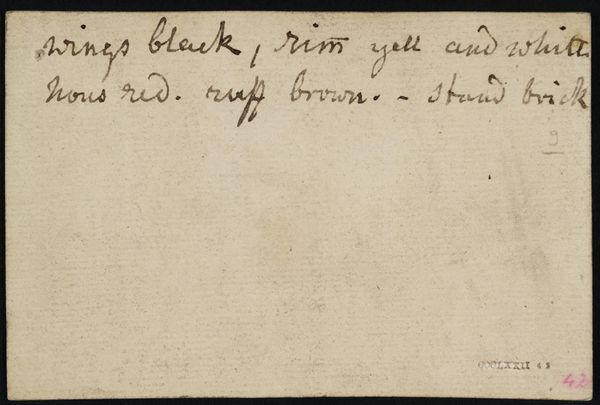 wings black, rim yell and white
hous red. ruff brown. - stand brick
9
CCCLXXII 43
42